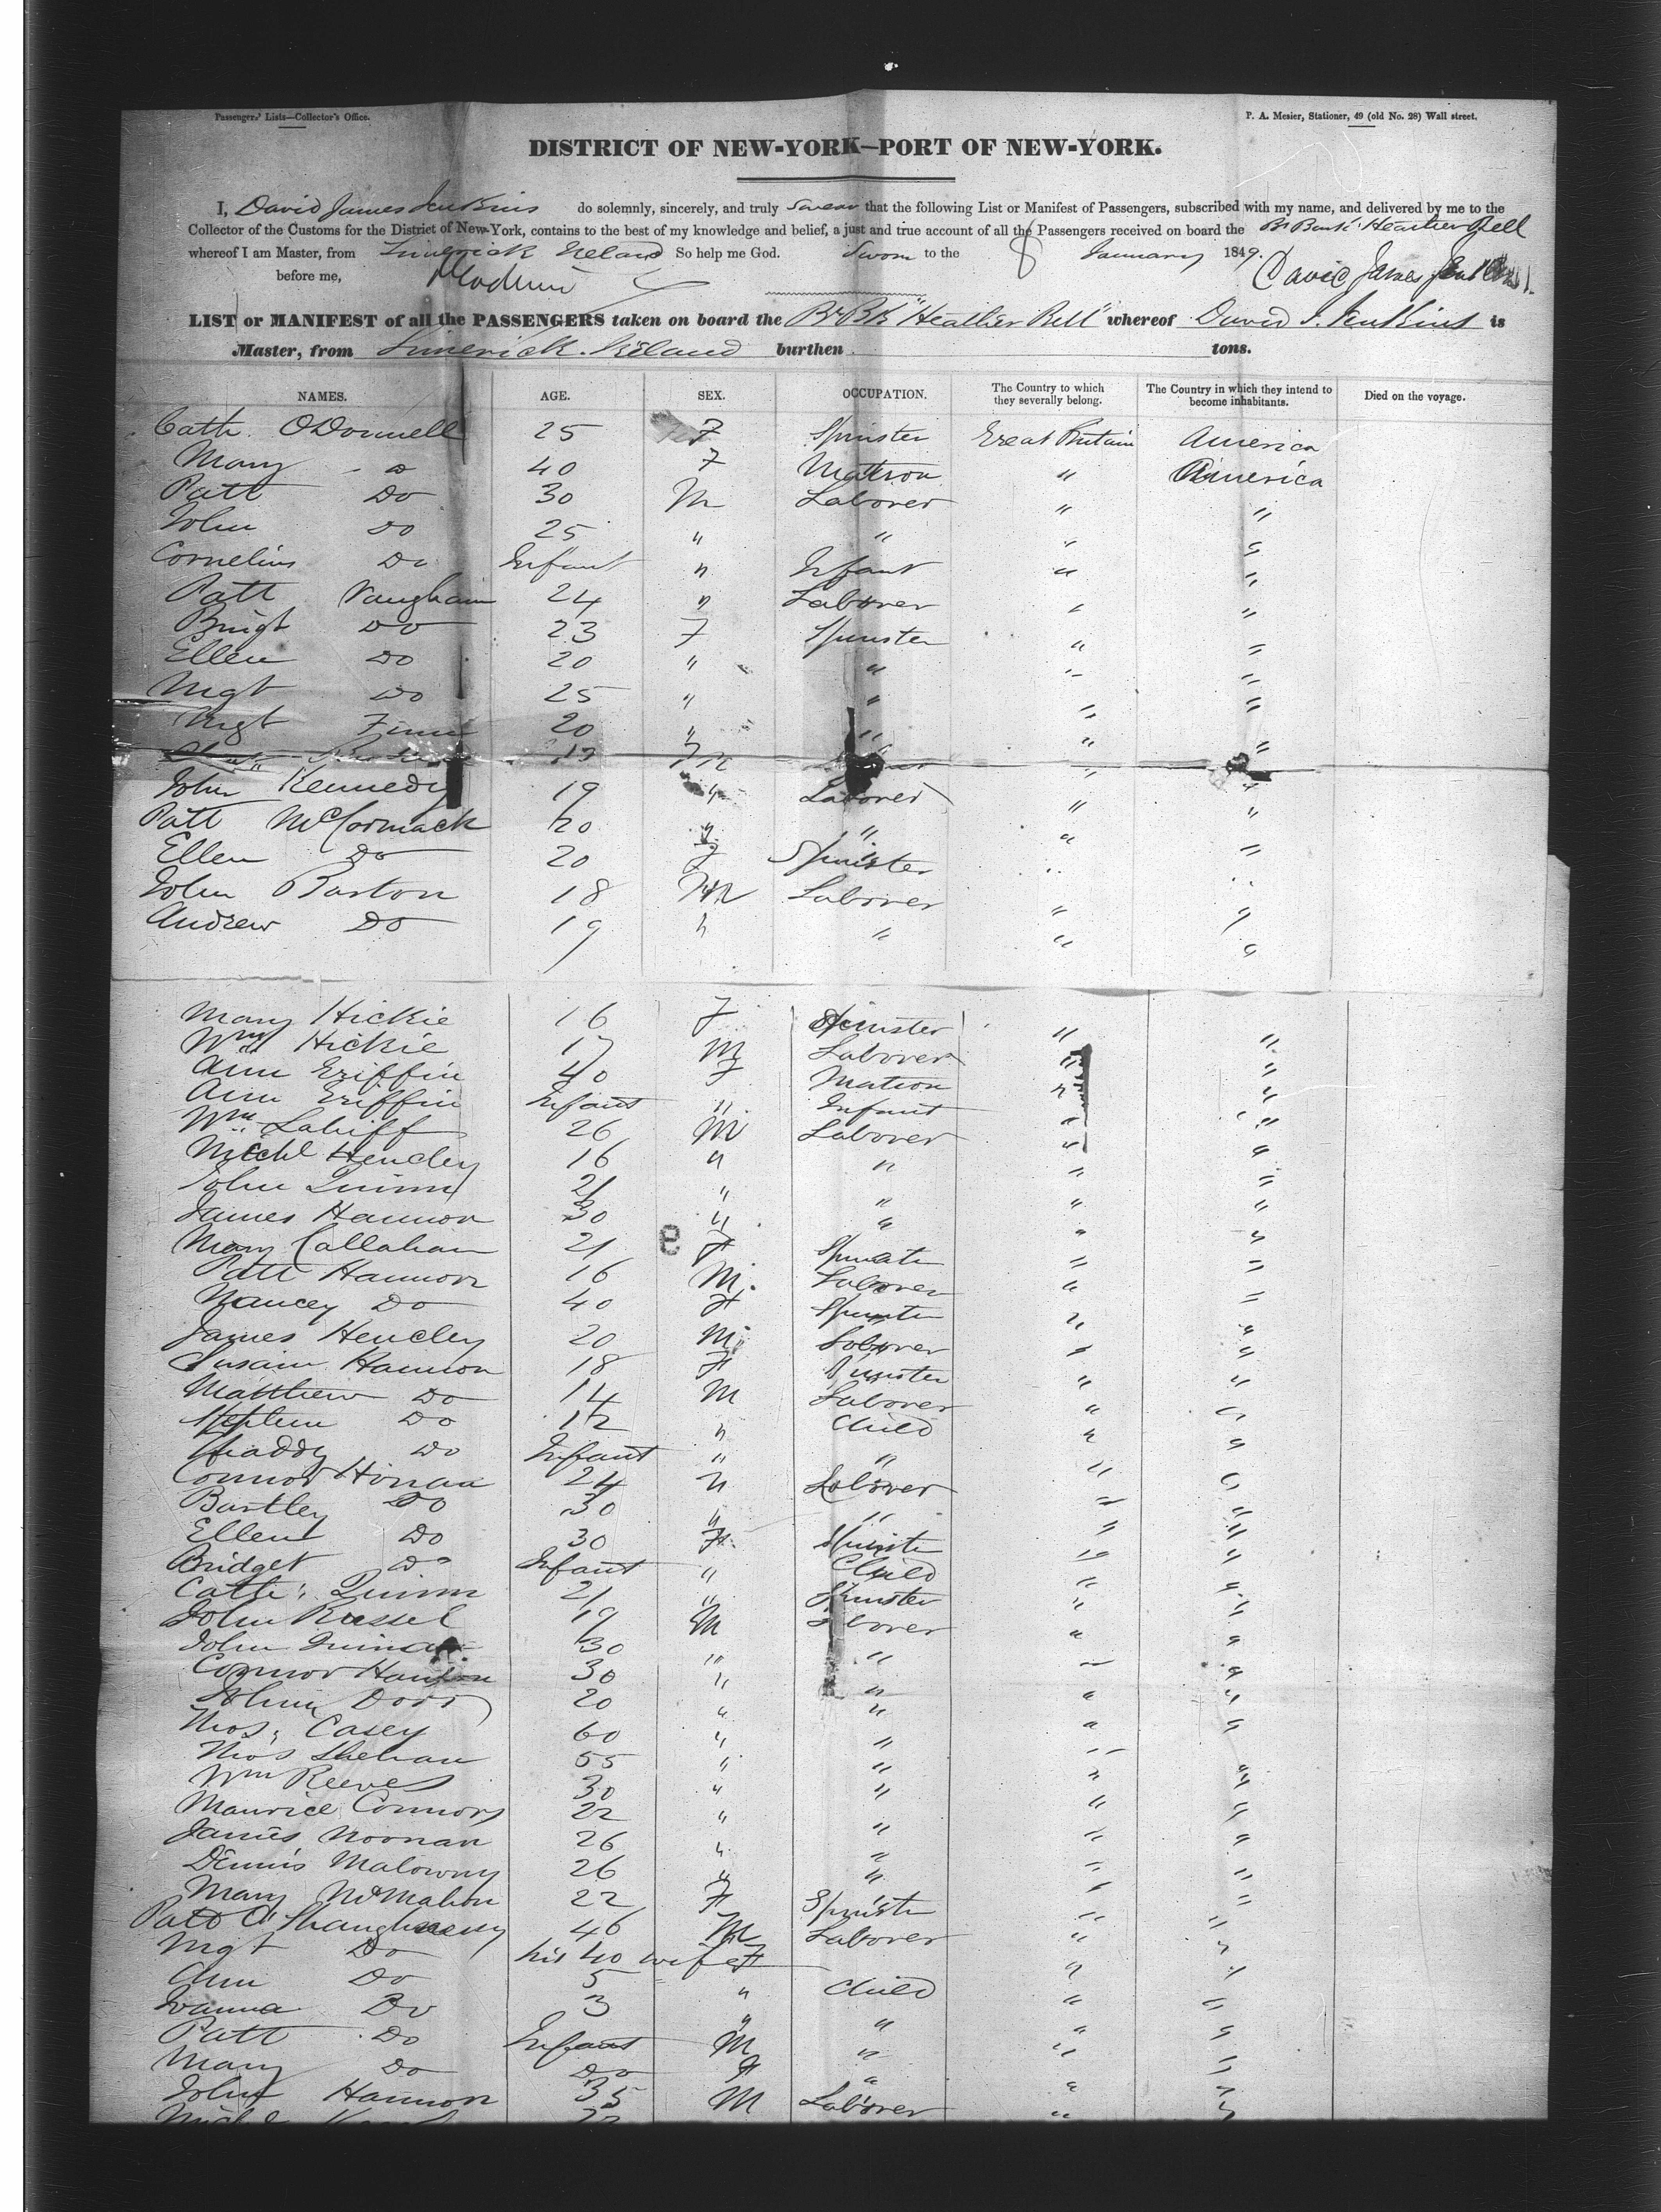 Passengers' Lists—Collector's Office.
P. A. Mesier, Stationer, 49 (old No. 28) Wall street.
DISTRICT OF NEW-YORK—PORT OF NEW-YORK.
I, David James Jenkins do solemnly, sincerely, and truly swear that the following List or Manifest of Passengers, subscribed with my name, and delivered by me to the
Collector of the Customs for the District of New-York, contains to the best of my knowledge and belief, a just and true account of all the Passengers received on board the Br Bark Heather Bell
whereof I am Master, from Limerick Ireland So help me God. Sworn to the 8 January 1849.
before me, David James Jenkins
LIST or MANIFEST of all the PASSENGERS taken on board the Br Bk "Heather Bell" whereof David J. Jenkins is
Master, from Limerick. Ireland burthen tons.
NAMES. AGE. SEX. OCCUPATION. The Country to which they severally belong. The Country in which they intend to become inhabitants. Died on the voyage.
Cath. ODonnell 25 F Spinster Great Britain America
Mary Do 40 F Matron " America
Patt Do 30 M Laborer " "
John Do 25 " " " "
Cornelius Do Infant " Infant " "
Patt Vaughan 24 " Laborer " "
Brigt Do 23 F Spinster " "
Ellen Do 20 " " " "
Mgt Do 25 " " " "
Mgt Finn 20 " " " "
John Kennedy 19 " Laborer " "
Patt McCormack 20 " " " "
Ellen Do 20 F Spinster " "
John Barton 18 M Laborer " "
Andrew Do 19 " " " "
Mary Hickie 16 F Spinster " "
Wm Hickie 17 M Laborer " "
Ann Griffin 40 F Matron " "
Ann Griffin Infant " Infant " "
Wm Lahiff 26 M Laborer " "
Michl Hencley 16 " " " "
John Quinn 21 " " " "
James Hannon 30 " " " "
Mary Callahan 21 F Spinster " "
Patt Hannon 16 M. Laborer " "
Nancey Do 40 F Spinster " "
James Hencley 20 M Laborer " "
Susain Hannon 18 F Spinster " "
Matthew Do 14 M Laborer " "
Stephen Do 12 " Child " "
Thaddy Do Infant " " " "
Connor Honan 24 " Laborer " "
Bartley Do 30 " " " "
Ellen Do 30 F Spinster " "
Bridget Do Infant " Child " "
Cath: Quinn 21 " Spinster " "
John Russel 19 M Laborer " "
John 30 " " " "
Connor Hannon 30 " " " "
John 20 " " " "
Thos. Casey 60 " " " "
Thos Shehan 55 " " " "
Wm Reeves 30 " " " "
Maurice Connors 22 " " " "
James Noonan 26 " " " "
Dennis Malowny 26 " " " "
Mary McMahon 22 F Spinster " "
Patt O'Shaughnessy 46 M Laborer " "
Mgt Do his 40 wife F " "
Ann Do 5 " Child " "
Joanna Do 3 " " " "
Patt Do Infant M " " "
Mary Do Do F " " "
John Hannon 35 M Laborer " "